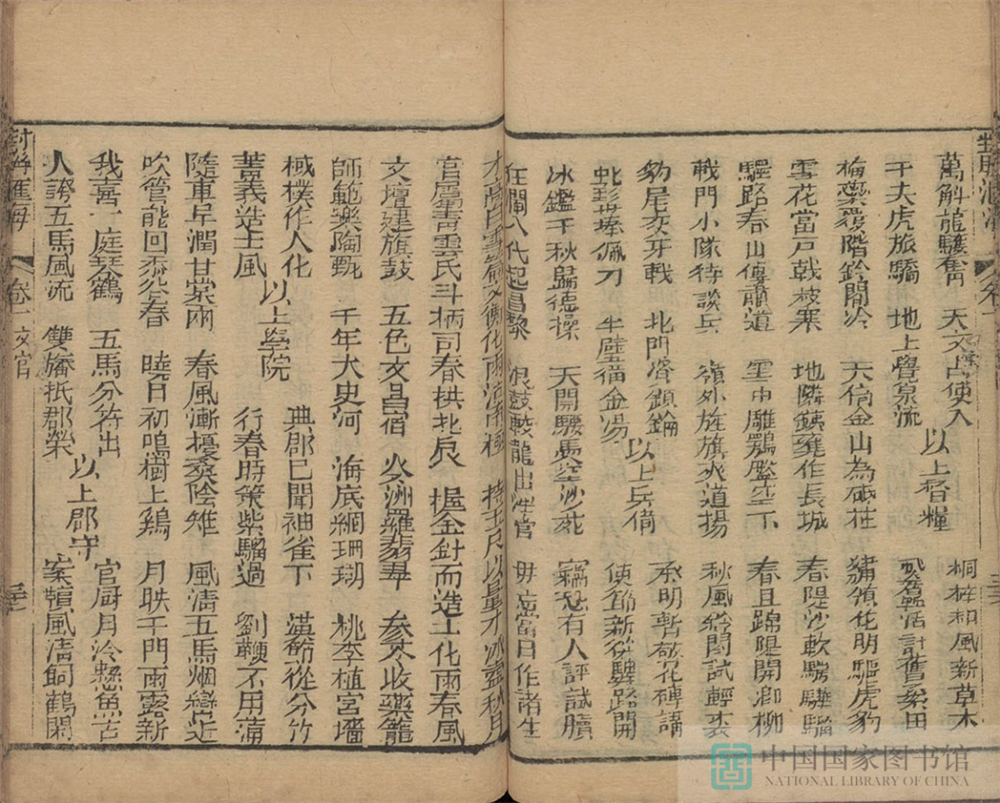 萬斛龍驤舊 天文占使入 桐梓和風新草木
千夫虎旅驕 地上覺泉流 以上督糧 活計舊桑田
梅藥覆階鈴閣冷 天倚金山為砥柱 繡領花明驅虎豹
雪花當戶戟枝寒 地隣鐵甕作長城 春隄沙軟騁驊騮
驛路春山傳肅道 雲中雕鶚壓空下 春旦錦隄開御柳
戟門小隊待談兵 嶺外旌旗夾道揚 秋風鈴閣試輕裘
豹尾交牙戟 北門資鎖鑰 承明暫啟花磚講
虬髯捧佩刀 半壁猶金湯 以上兵備 使節新從驛路開
冰鑑千秋歸德操 天開驥馬空沙苑 竊恐有人評試牘
狂瀾八代起昌黎 浪鼓蛟龍出 毋忘當日作諸生
才高白雪 文衡化雨 持玉尺以量才冰壺秋月
官屬青雲氏斗柄司春拱北辰 握金針而造士化雨春風
文壇建旗鼓 五色文昌宿 炎洲羅翡翠 參苓收藥籠
師範樂陶甄 千年大史河 海底網珊瑚 桃李植宮墻
棫樸作人化 典郡已聞袖雀下 漢節從分竹
菁莪造士風 以上學院 行春時策紫騮過 劉鞭不用蒲
隨車早潤甘棠雨 春風漸擾桑陰雉 風清五馬烟巒近
吹管能回黍谷春 曉日初鳴樹上鷄 月映千門雨露新
我喜一庭琴鶴 五馬分符出 官厨月冷懸魚苦
人誇五馬風流 雙旛抵郡榮 以上郡守 案牘風清飼鶴閑
卷一文官